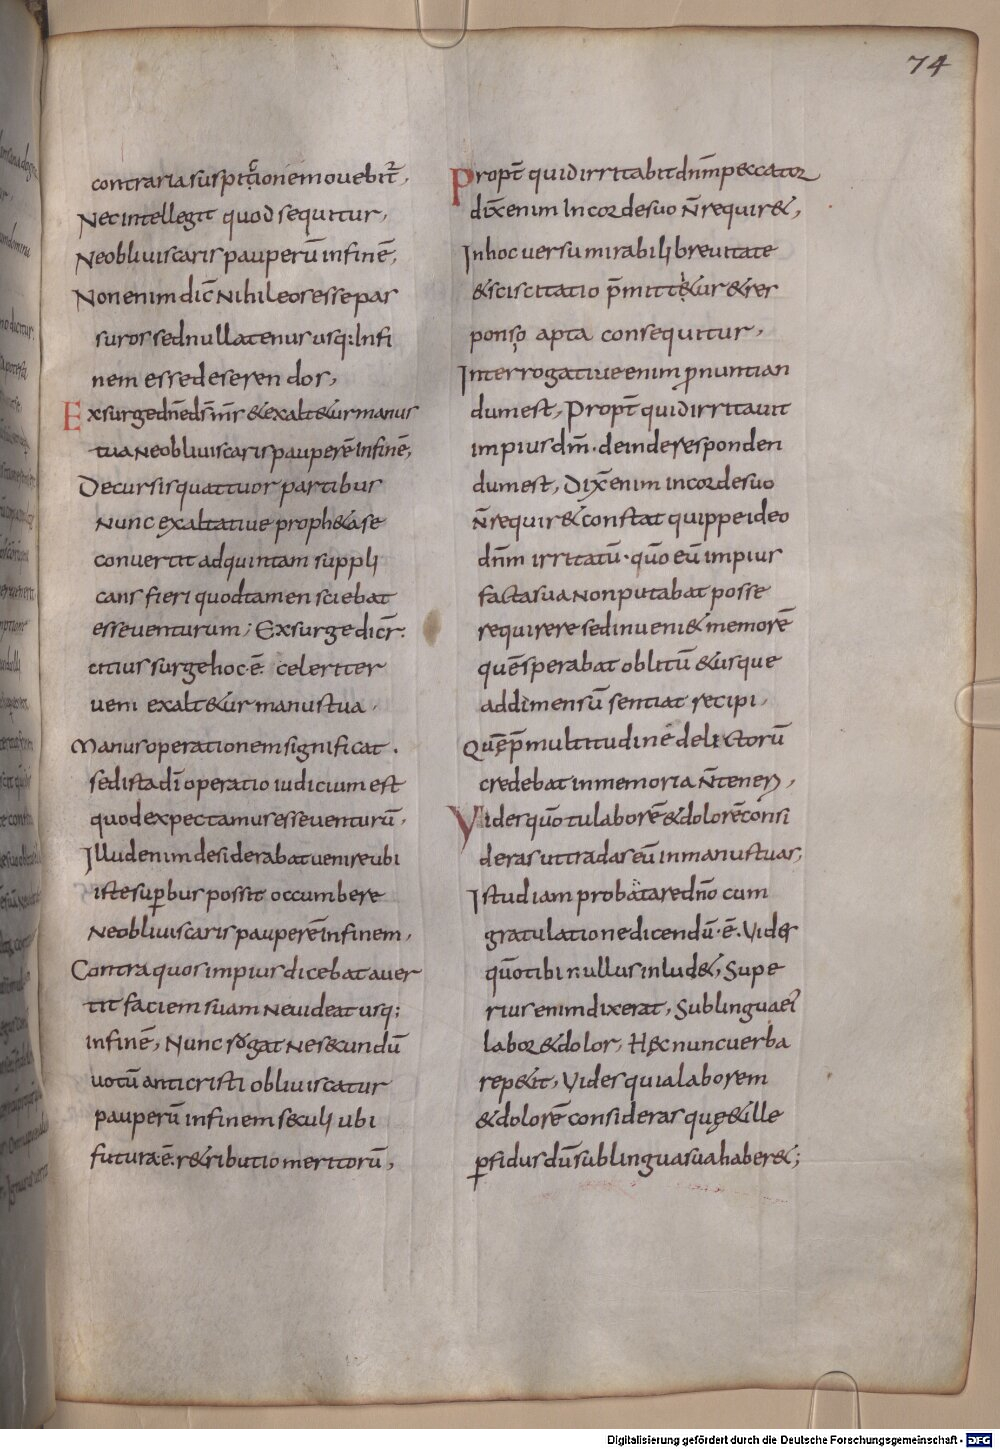 74
contraria suspitionẽ mouebit̃,
Nec intellegit quod sequitur,
Ne obliuiscaris pauperũ in finẽ,
Non enim dic̃ Nihil eos esse pas
suros sed nullatenus usq: In fi
nem esse deserendos,
Exsurge dñe ds̃ m̃s & exalt&ur manus
tua Ne obliuiscaris pauperẽ in finẽ,
Decursis quattuor partibus
Nunc exaltatiue proph&a se
conuertit ad quintam suppli
cans fieri quod tamen sciebat
esse uenturum; Exsurge dicit̃:
citius surge hoc ẽ: celeriter
ueni exalt&ur manus tua,
Manus operationem significat.
sed ista dĩ operatio iudicium est
quod expectamus esse uenturũ,
Illud enim desiderabat uenire ubi
iste sup̱bus possit occumbere
Ne obliuiscaris pauperẽ in finem,
Contra quos impius dicebat auer
tit faciem suam Ne uideat usq;
in finẽ, Nunc rogat Ne secundũ
uotũ anticristi obliuiscatur
pauperũ in finem seculi ubi
futura ẽ: r&ributio meritorũ,
Propt̃ quid irritabit dñm peccator
dix̃ enim In corde suo ñ requir&,
In hoc uersu mirabili breuitate
& sciscitatio p̃mittetur & res
ponsio apta consequitur,
Interrogatiue enim ꝓnuntian
dum est, Propt̃ quid irritauit
impius dm̃. deinde responden
dum est, Dix̃ enim in corde suo
ñ requir& constat quippe ideo
dñm irritatũ. quõ eũ impius
facta sua Non putabat posse
requirere sed inueni& memorẽ
quẽ sperabat oblitũ & usque
ad dimensũ sentiat recipi,
Quẽ p̃ multitudinẽ delictorũ
credebat in memoria ñ teneri,
Vides quõ tu laborẽ & dolorẽ consi
deras ut tradas eũ in manus tuas,
Istud iam probata re dñо cum
gratulatione dicendũ. ẽ. Vides
quõ tibi nullus inlud&, Supe
rius enim dixerat, Sub lingua ei
labor & dolor, Hęc nunc uerba
rep&it, Vides quia laborem
& dolorẽ consideras quę & ille
ꝑfidus dũ sub lingua sua haber&;
Digitalisierung gefördert durch die Deutsche Forschungsgemeinschaft - DFG